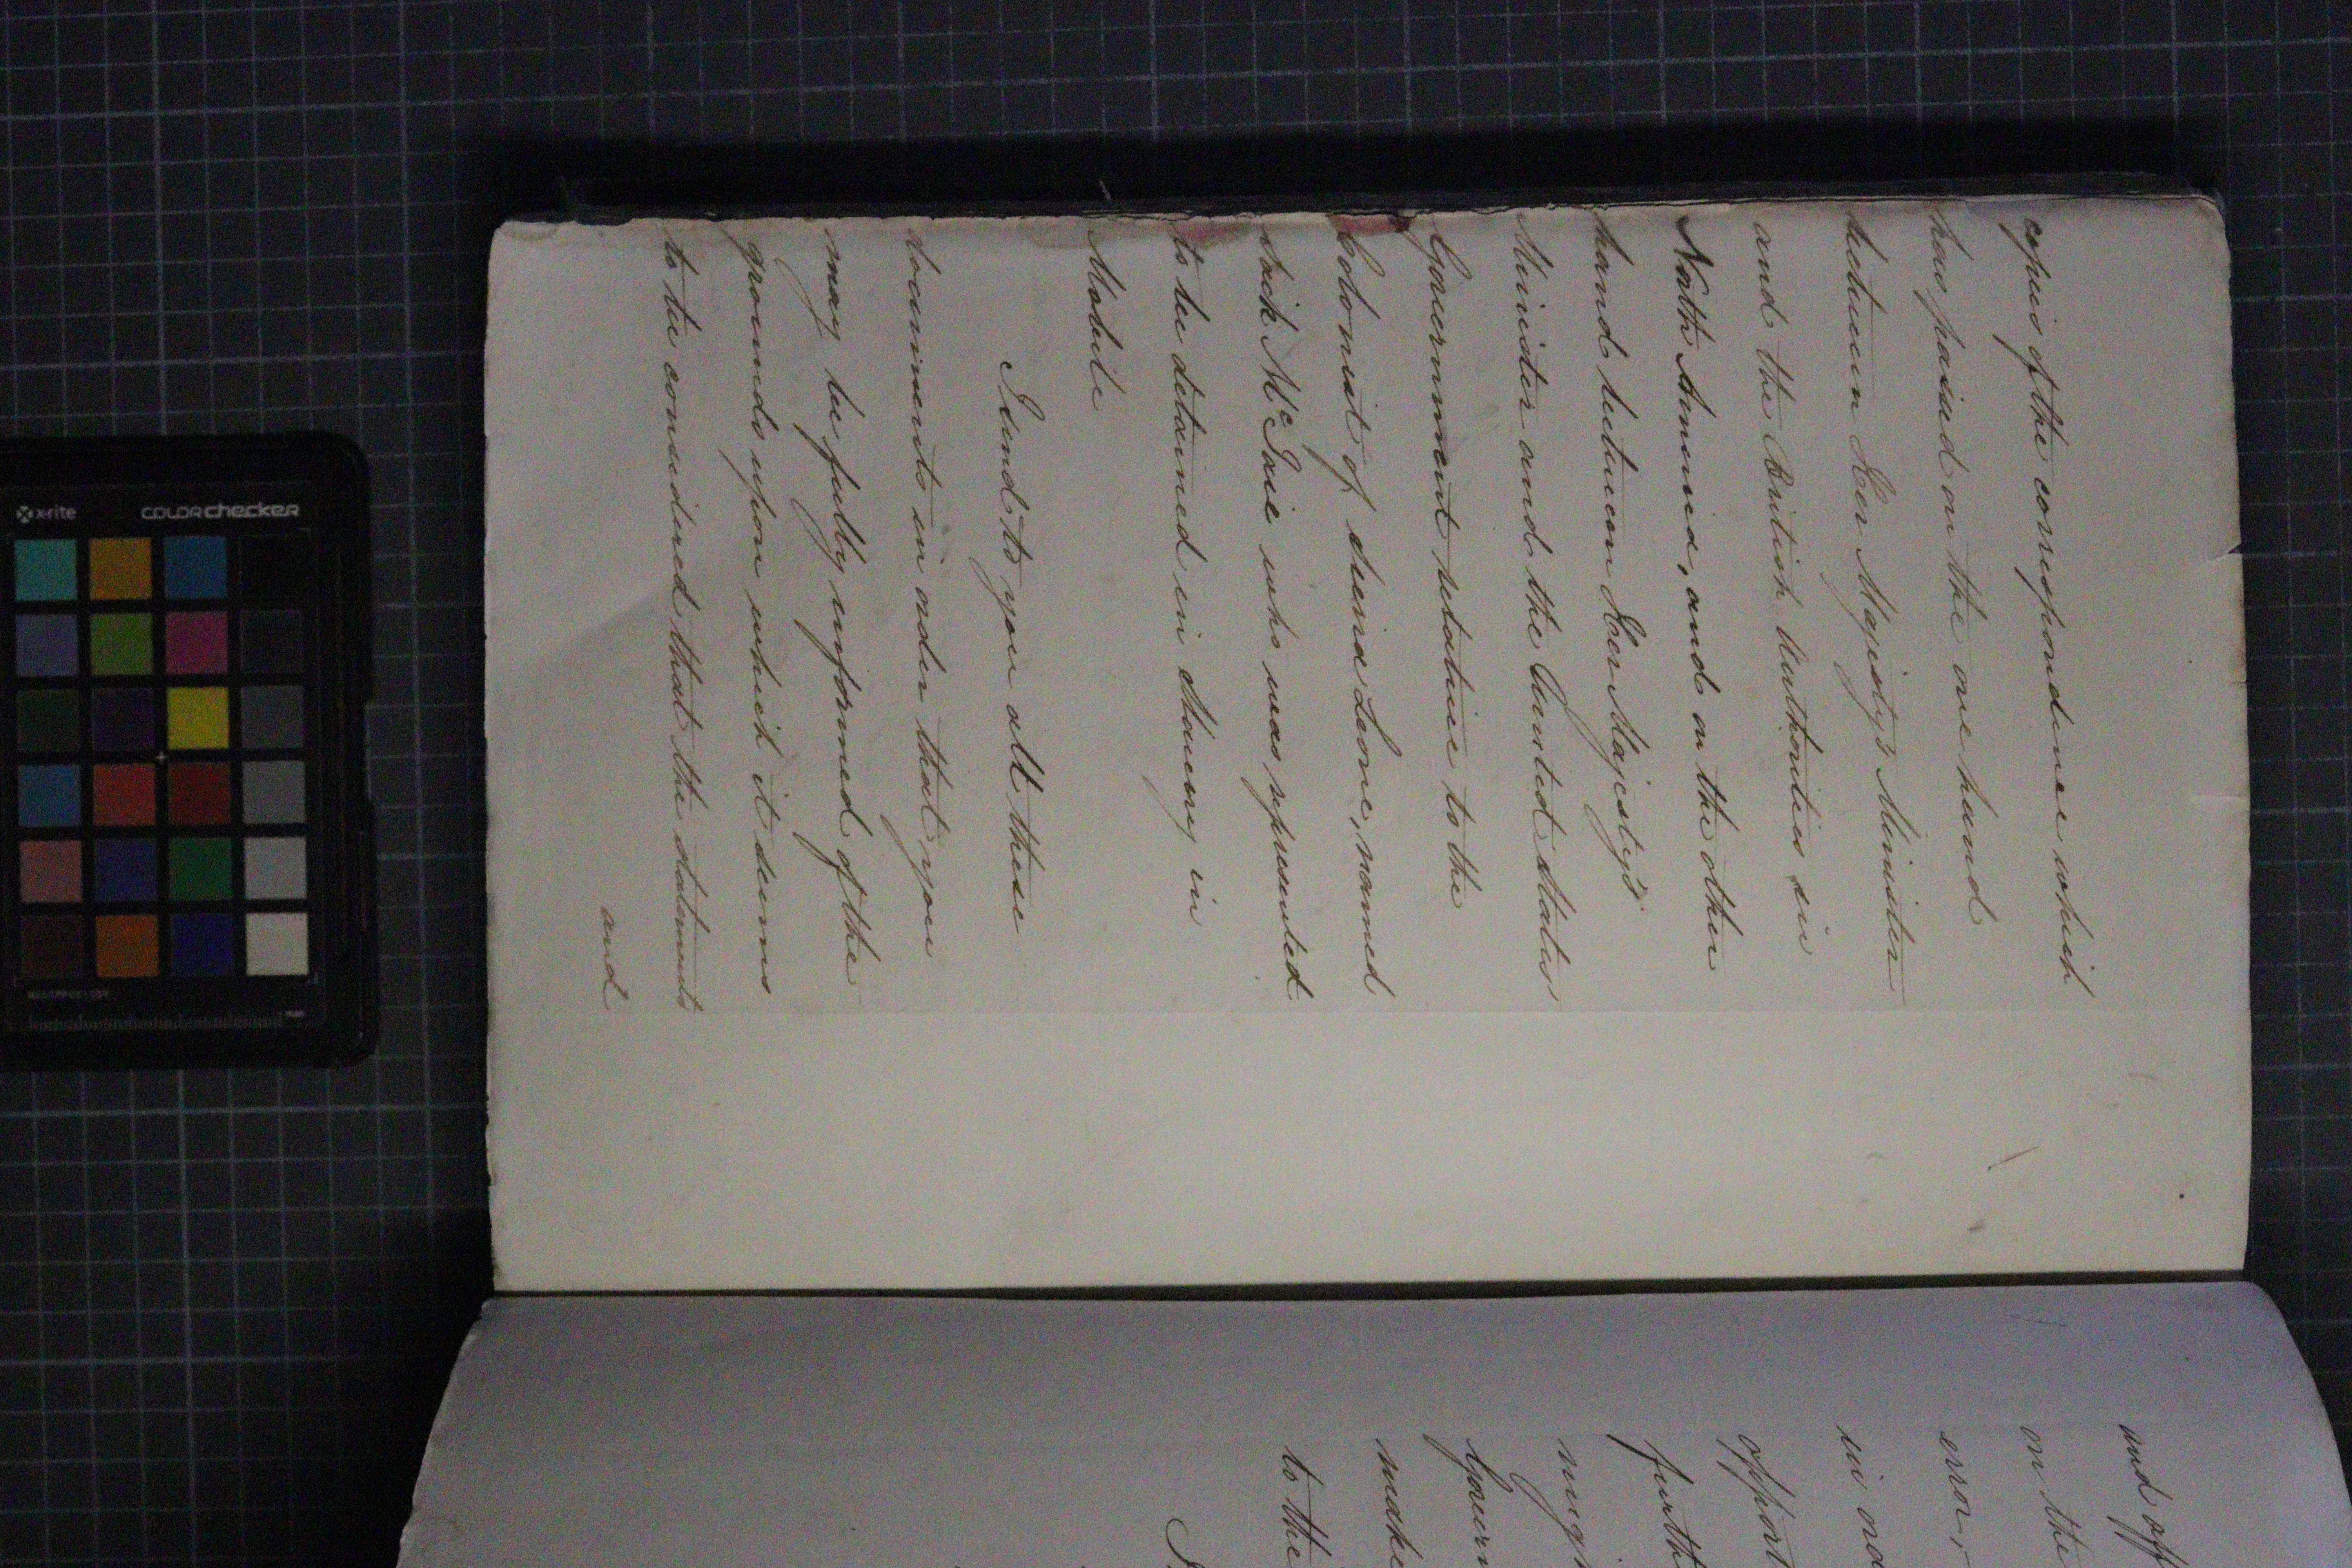 copies of the correspondence which
have passed on the one hand
between Her Majesty's Minister
and the British Authorities in
North America, and on the other
hand between Her Majesty's
Minister and the United States
Government relative to the
Colonist of Sierra Leone, named
who was represented
to be detained in Slavery in
Mobile
I send to you all these
documents in order that you
may be fully informed of the
grounds upon which it seems
to be considered that the statements
and
and
on the
error,
in
furth
make
to the
x-rite colorchecker